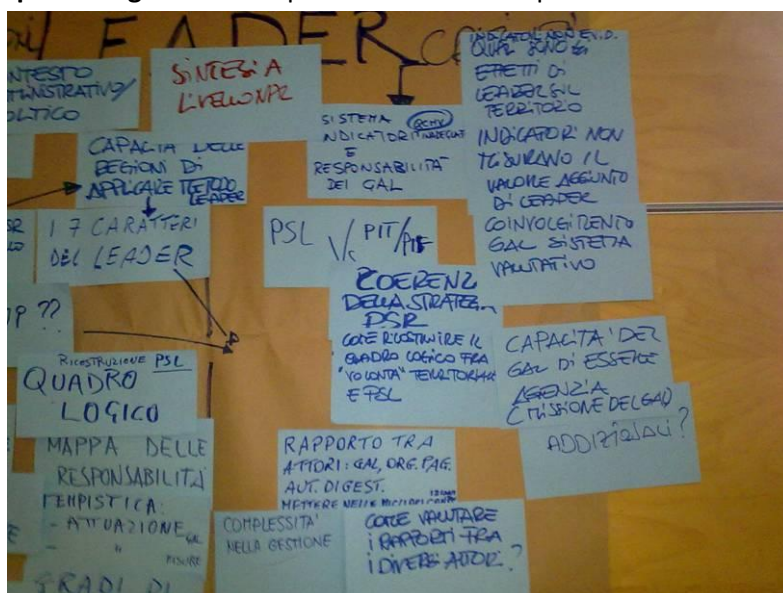 LEADER
NTESTO
MINISTRATIVO/
OLITICO
SINTESI A
LIVELLO NPR
CAPACITA DELLE
REGIONI DI
APPLICARE METODO
LEADER
I 7 CARATTERI
DEL LEADER
P ??
RICOSTRUZIONE PSL
QUADRO
LOGICO
MAPPA DELLE
RESPONSABILITÀ
TEMPISTICA:
- ATTUAZIONE
- "
MISURE
GRADI DI
SISTEMA QCMV
INDICATORI INADEGUAT
E
RESPONSABILITÀ
DEI GAL
PSL V/s PIT/PIF
COERENZ
DELLA STRATEG
PSR
COME RICOSTRUIRE IL
QUADRO LOGICO FRA
"VOLONTA" TERRITORIALE
E PSL
RAPPORTO TRA
ATTORI: GAL, ORG. PAG.
AUT. DI GEST.
METTERE NELLE
COMPLESSITA'
NELLA GESTIONE
COME VALUTARE
I RAPPORTI FRA
I DIVERSI ATTORI?
INDICATORI NON EV.D.
QUALI SONO GLI
EFFETTI DI
LEADER SUL
TERRITORIO
INDICATORI NON
MISURANO IL
VALORE AGGIUNTO
DI LEADER
COINVOLGIMENTO
GAL SISTEMA
VALUTATIVO
CAPACITA' DEL
GAL DI ESSERE
AGENZIA
(MISSIONE DEL GAL)
ADDIZIONALI?